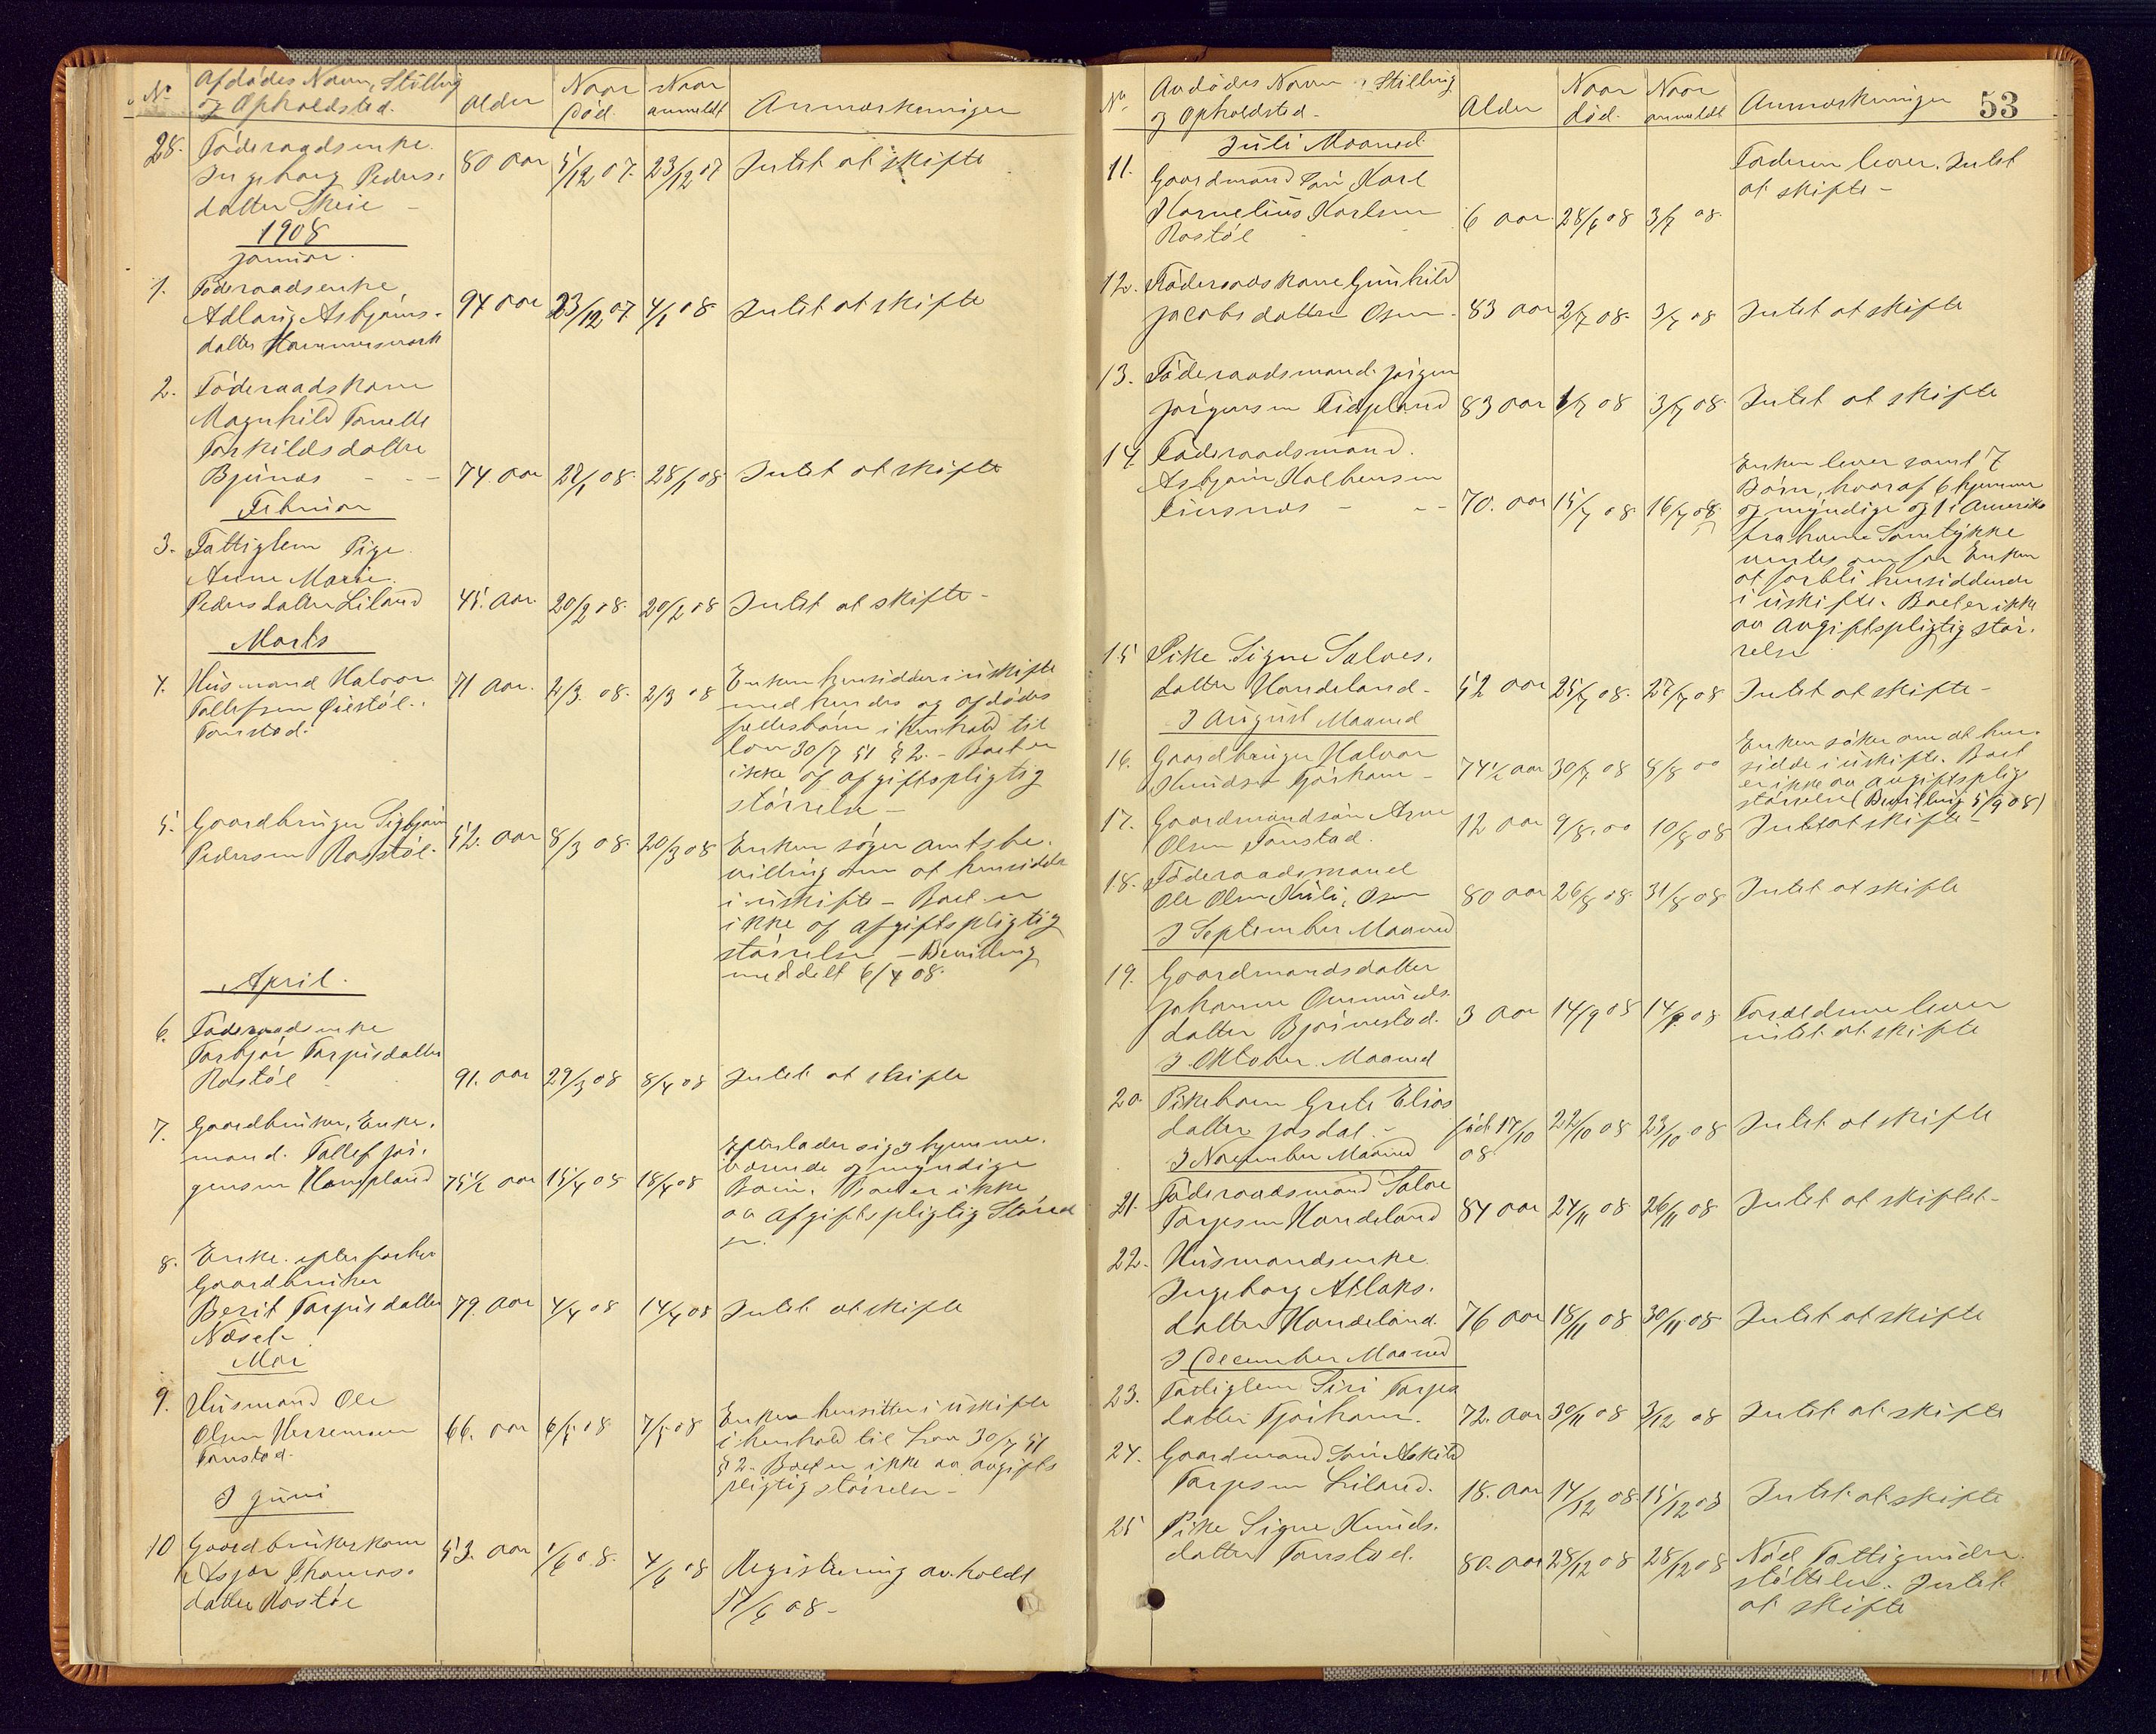 No Afdødes Navn, Stilling
og Opholdsted. Alder Naar død. Naar anmeldt Anmærkninger
28. Føderaadsenke
Ingeborg Peders-
datter Skeie – 80 aar 5/12 07. 23/12 07 Intet at skifte
1908
Januar.
1. Føderaadsenke
Adlaug Asbjørns-
datter Hammersmark 94 aar 23/12 07 4/1 08 Intet at skifte
2. Føderaadskone
Magnhild Tonette
Torkildsdatter
Bjunes - - - 74 aar 27/1 08. 28/1 08 Intet at skifte
Februar
3. Fattiglem Pige
Anne Marie
Pedersdatter Liland 45. aar. 20/2 08. 20/2 08 Intet at skifte –
Marts
4. Husmand Halvor
Tallefsen Øiestøl.
Tonstad. 71 aar. 2/3. 08. 2/3 08 Enken hensidder i uskifte
med hendes og afdødes
fællesbørn i henhold til
lov 30/7 51 § 2. – Boet er
ikke af afgiftspligtig
størrelse –
5. Gaardbruger Sigbjørn
Pedersen Rostøl. 52. aar 8/3 08. 20/3 08 Enken søger amtsbe-
villing om at hensidde
i uskifte – Boet er
ikke af afgiftspligtig
størrelse – Bevilling
meddelt 6/4 08.
April.
6. Føderaadsenke
Torbjør Torjusdatter
Rostøl 91. aar 29/3 08 8/4 08 Intet at skifte
7. Gaardbruker, Enke-
mand. Tallef Jør-
gensen Haugland 75½ aar 15/4 08 18/4 08 Efterlader sig 3 hjemme-
værende og myndige
Børn. Boet er ikke
av afgiftspligtig Størrel
se.
8. Enke efter forhv
Gaardbruker
Berit Torjusdatter
Næset 79. aar 4/4 08 14/4 08 Intet at skifte
Mai
9. Husmand Ole
Olsen Herremoen
Tonstad. 66. aar 6/5 08 7/5 08 Enken hensitter i uskifte
i henhold til Lov 30/7 51
§ 2. Boet er ikke av avgifts
pligtig størrelse –
I Juni
10 Gaardbrukerkone
Asjør Thomas-
datter Rostøl 53. aar 1/6 08. 4/6 08 Registrering avholdt
17/6 08 –
53
No. Avdødes Navn, Stilling
og Opholdsted – Alder Naar død. Naar anmeldt Anmærkninger
Juli Maaned
11. Gaardmand Søn Karl
Kornelius Karlsen
Rostøl 6 aar 28/6 08 3/7 08. Faderen lever. Intet
at skifte –
12. Føderaadskone Gunhild
Jacobsdatter Osen. 83 aar 2/7 08. 3/7 08 Intet at skifte
13. Føderaadsmand. Jørgen
Jørgensen Fidjeland 83 aar 1/7 08 3/7 08. Intet at skifte
14 Føderaadsmand.
Asbjørn Kolbensen
Finsnes - - - 70. aar 15/7 08 16/7 08. Enken lever samt 7
Børn, hvoraf 6 hjemme
og myndige og 1 i Amerika
fra hvem Samtykke
ventes om for Enken
at forbli hensiddende
i uskifte. Boet er ikke
av avgiftspligtig stør-
relse
15 Pike Signe Salves-
datter Handeland – 52 aar 25/7 08. 27/7 08 Intet at skifte –
I August Maaned
16. Gaardbruger Halvor
Knudsen Tjørhom – 74½ aar 30/7 08 8/8 00 Enken søker om at hen-
sidde i uskifte. Boet
er ikke av avgiftsplig
størrelse (Bevilling 5/9 08)
17. Gaardmandsøn Arne
Olsen Tonstad. 12 aar 9/8. 00 10/8 08 Intet at skifte –
18. Føderaadsmand
Ole Olsen Kuli, Osen 80 aar 26/8 08. 31/8 08 Intet at skifte
I September Maaned
19. Gaardmandsdatter
Johanne Ommunds-
datter Bjørnestad. 3 aar 14/9 08 14/9 08 Forældrene lever
intet at skifte
I Oktober Maaned
20. Pikebarn Grete Elias
datter Josdal. – født 17/10
08 22/10 08 23/10 08 Intet at skifte
I November Maaned
21. Føderaadsmand Salve
Torjesen Handeland 84 aar 24/11 08 26/11 08 Intet at skiftet –
22. Husmandsenke
Ingeborg Atlaks-
datter Handeland. 76 aar 18/11 08 30/11 08 Intet at skifte
I December Maaned
23. Fattiglem Siri Torjes
datter Tjørhom. 72. aar 30/11 08 3/12 08 Intet at skifte
24. Gaardmand Søn Askild
Torjesen Liland. 18. aar 14/12 08 15/12 08 Intet at skifte
25 Pike Signe Knuds-
datter Tonstad. 80. aar 28/12 08 28/12 08 Nød Fattigunder
støttelse. Intet
at skifte